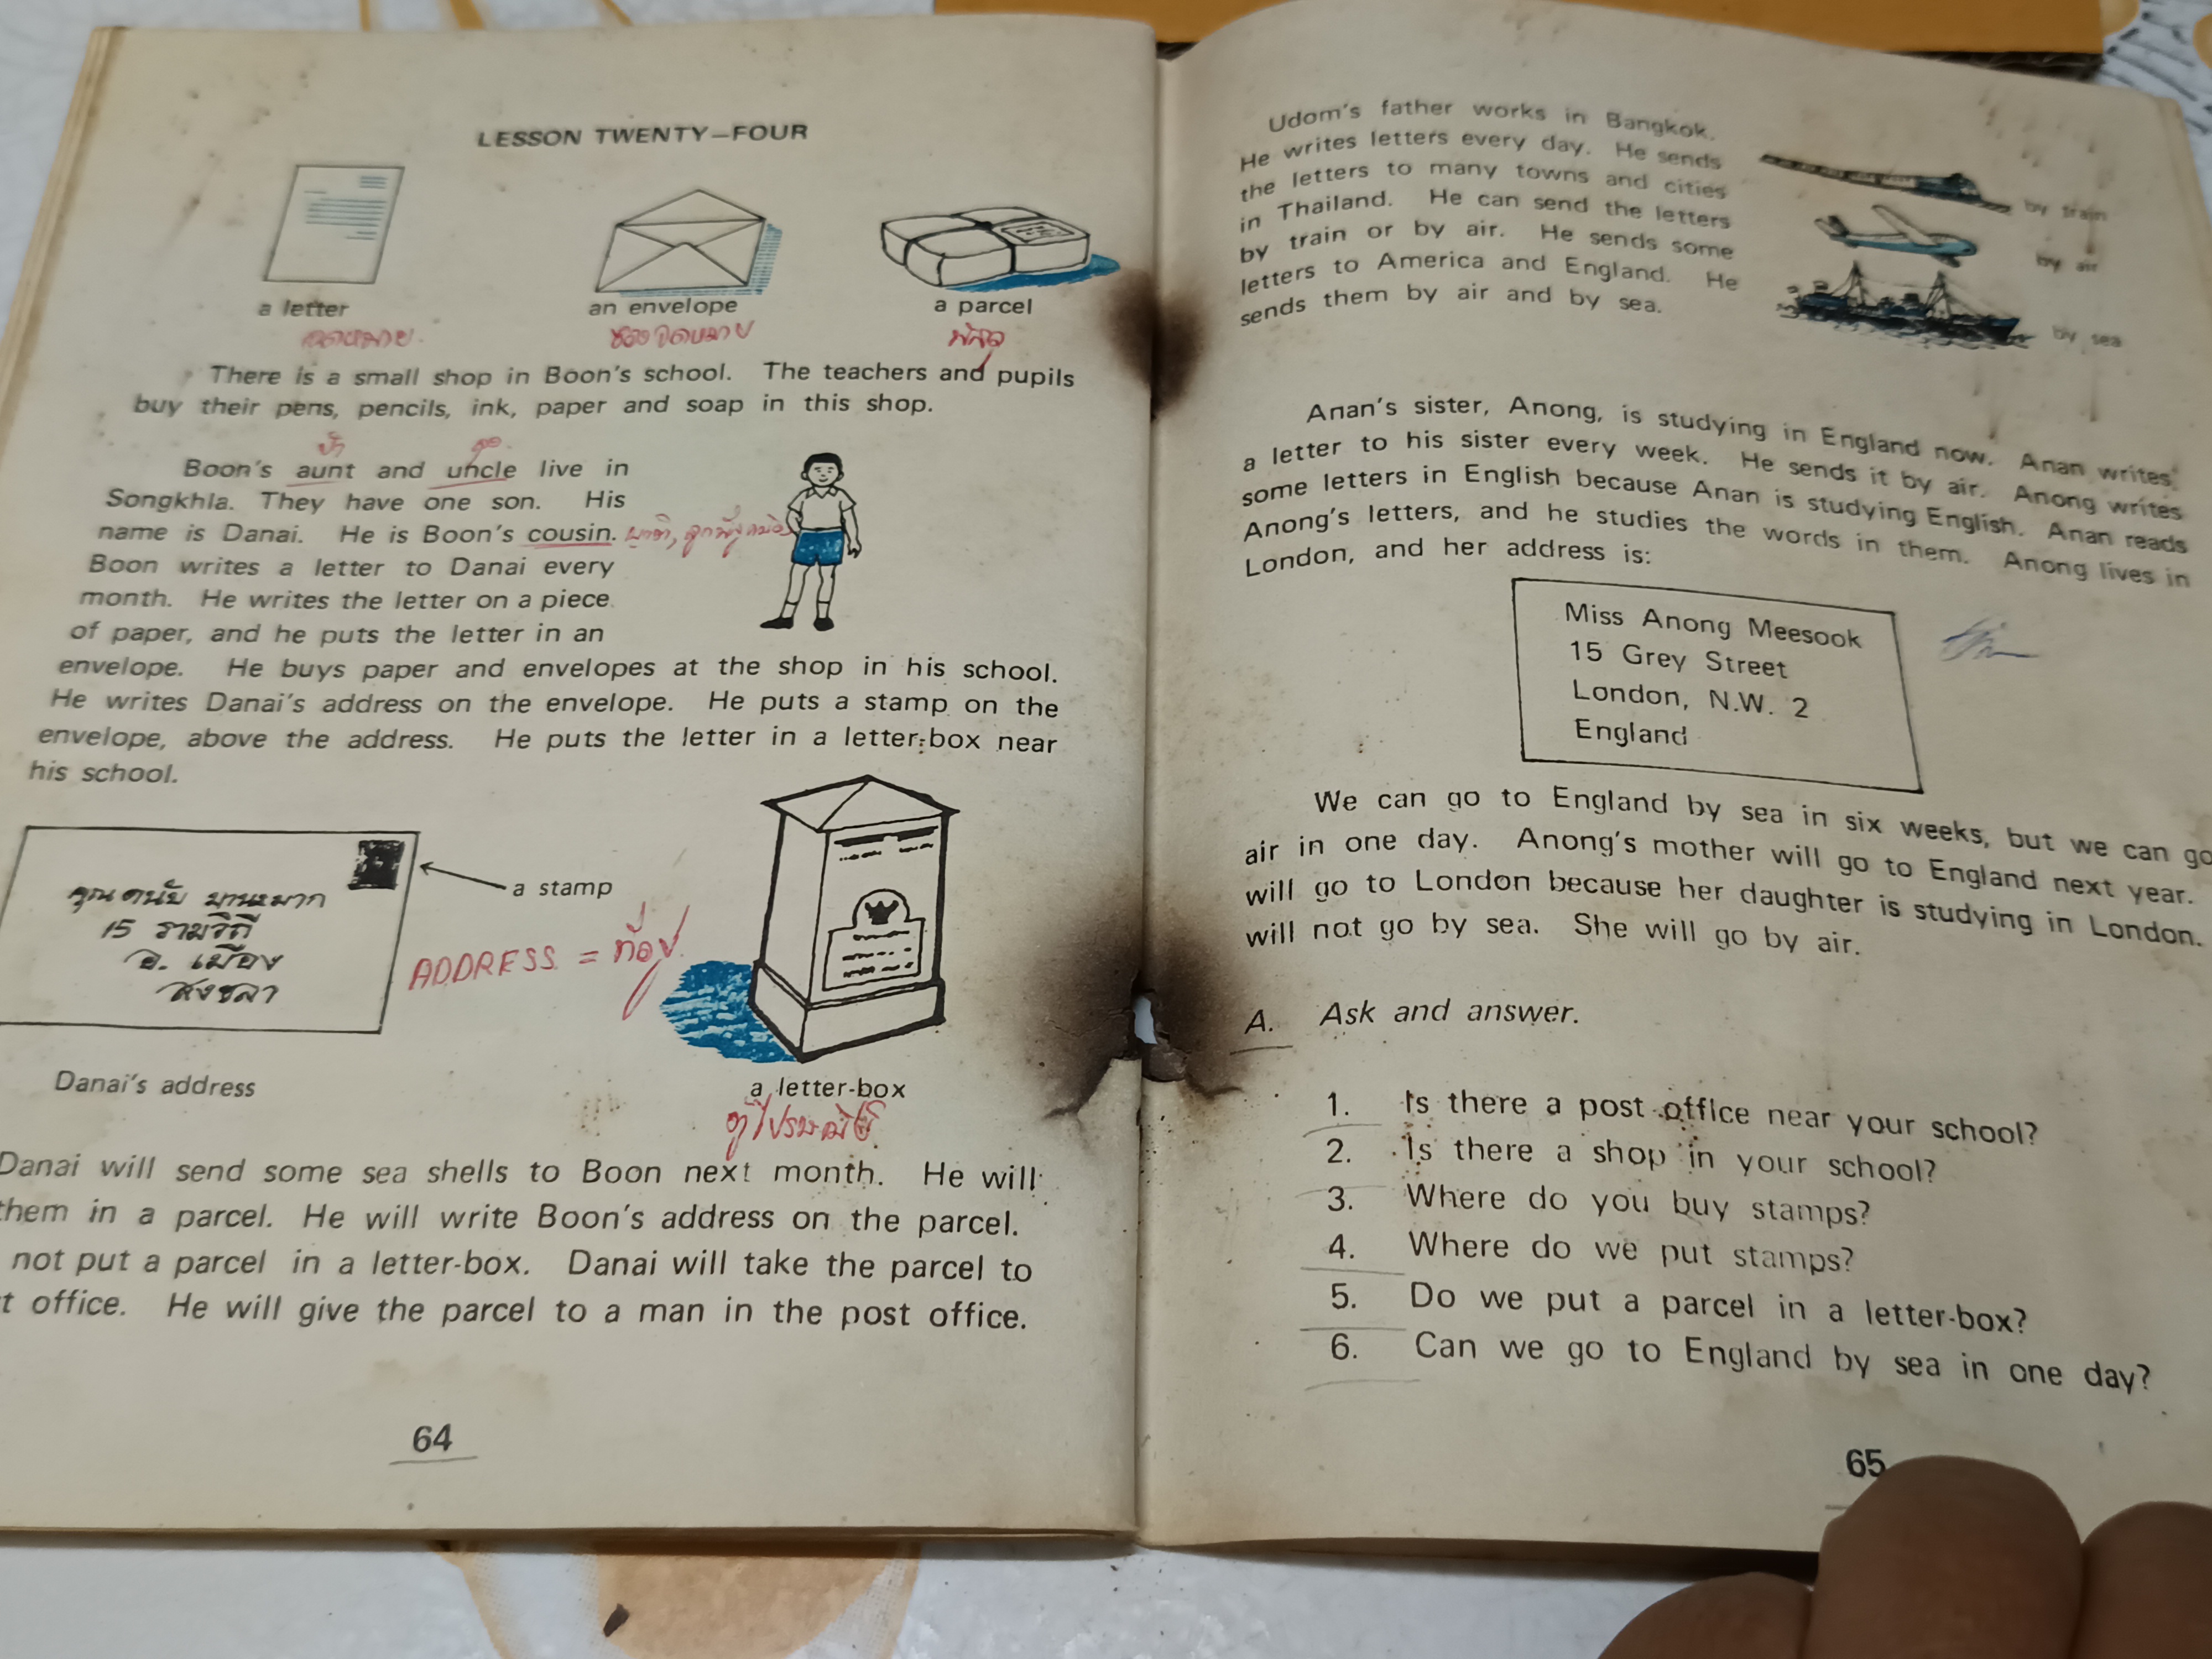 LESSON TWENTY–FOUR
a letter
an envelope
a parcel
จดหมาย
ซองจดหมาย
พัสดุ
There is a small shop in Boon's school. The teachers and pupils
buy their pens, pencils, ink, paper and soap in this shop.
ป้า
Boon's aunt and uncle live in
Songkhla. They have one son. His
name is Danai. He is Boon's cousin.
ญาติ, ลูกพี่ลูกน้อง
Boon writes a letter to Danai every
month. He writes the letter on a piece
of paper, and he puts the letter in an
envelope. He buys paper and envelopes at the shop in his school.
He writes Danai's address on the envelope. He puts a stamp on the
envelope, above the address. He puts the letter in a letter-box near
his school.
a stamp
คุณดนัย มานะมาก
15 รามวิถี
อ. เมือง
สงขลา
ADDRESS = ที่อยู่
Danai's address
a letter-box
ตู้ไปรษณีย์
Danai will send some sea shells to Boon next month. He will
them in a parcel. He will write Boon's address on the parcel.
not put a parcel in a letter-box. Danai will take the parcel to
t office. He will give the parcel to a man in the post office.
64
Udom's father works in Bangkok.
He writes letters every day. He sends
the letters to many towns and cities
in Thailand. He can send the letters
by train or by air. He sends some
letters to America and England. He
sends them by air and by sea.
by train
by air
by sea
Anan's sister, Anong, is studying in England now. Anan writes
a letter to his sister every week. He sends it by air. Anong writes
some letters in English because Anan is studying English. Anan reads
Anong's letters, and he studies the words in them. Anong lives in
London, and her address is:
Miss Anong Meesook
15 Grey Street
London, N.W. 2
England
We can go to England by sea in six weeks, but we can go
air in one day. Anong's mother will go to England next year.
will go to London because her daughter is studying in London.
will not go by sea. She will go by air.
A. Ask and answer.
1. Is there a post office near your school?
2. Is there a shop in your school?
3. Where do you buy stamps?
4. Where do we put stamps?
5. Do we put a parcel in a letter-box?
6. Can we go to England by sea in one day?
65